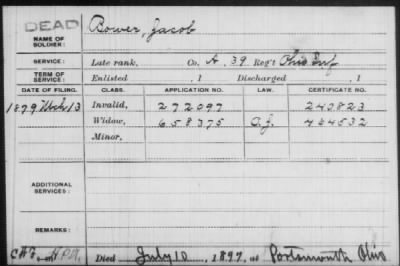 DEAD
NAME OF SOLDIER: Bower, Jacob
SERVICE: Late rank, Co. A, 39 Reg't Ohio Inf
TERM OF SERVICE: Enlisted , 1 Discharged , 1
DATE OF FILING. CLASS. APPLICATION NO. LAW. CERTIFICATE NO.
1879 Mch 13 Invalid, 272097 240823
Widow, 658375 484532
Minor,
ADDITIONAL SERVICES:
REMARKS:
Died July 10, 1897, at Portsmouth Ohio